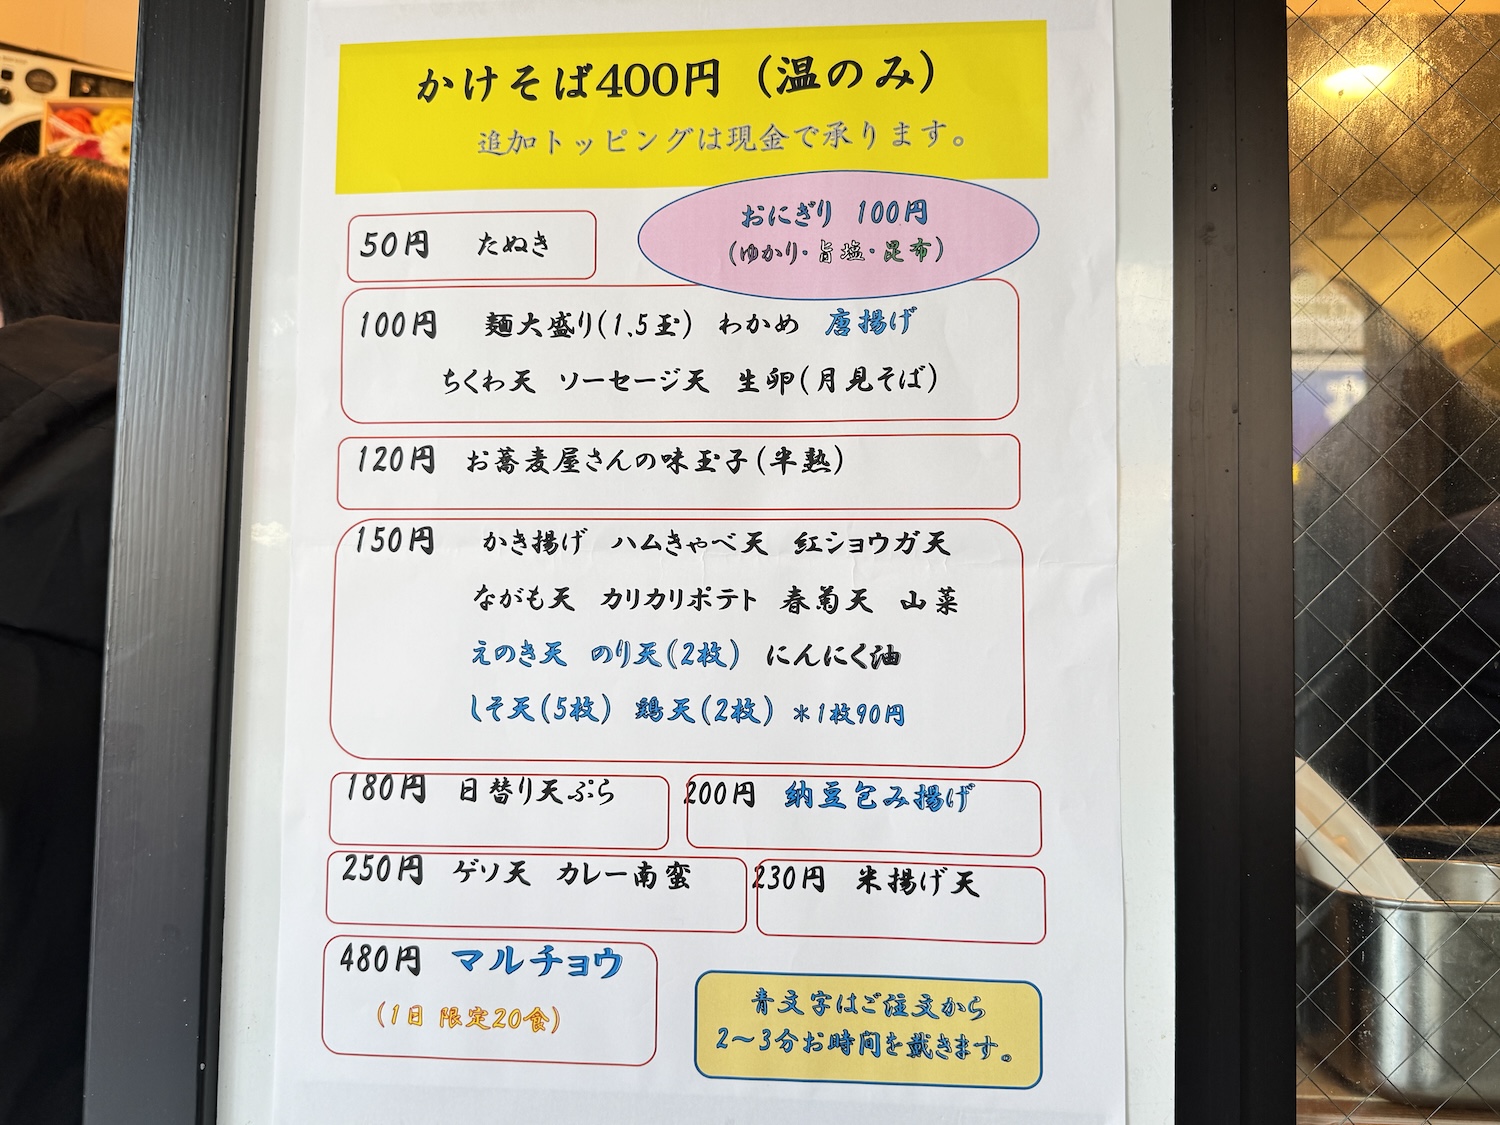 かけそば400円（温のみ）
追加トッピングは現金で承ります。
おにぎり 100円
（ゆかり・旨塩・昆布）
50円 たぬき
100円 麺大盛り(1.5玉) わかめ 唐揚げ
ちくわ天 ソーセージ天 生卵(月見そば)
120円 お蕎麦屋さんの味玉子(半熟)
150円 かき揚げ ハムきゃべ天 紅ショウガ天
ながも天 カリカリポテト 春菊天 山菜
えのき天 のり天(2枚) にんにく油
しそ天(5枚) 鶏天(2枚) ＊1枚90円
180円 日替り天ぷら
200円 納豆包み揚げ
250円 ゲソ天 カレー南蛮
230円 米揚げ天
480円 マルチョウ
(1日 限定20食)
青文字はご注文から
2～3分お時間を戴きます。